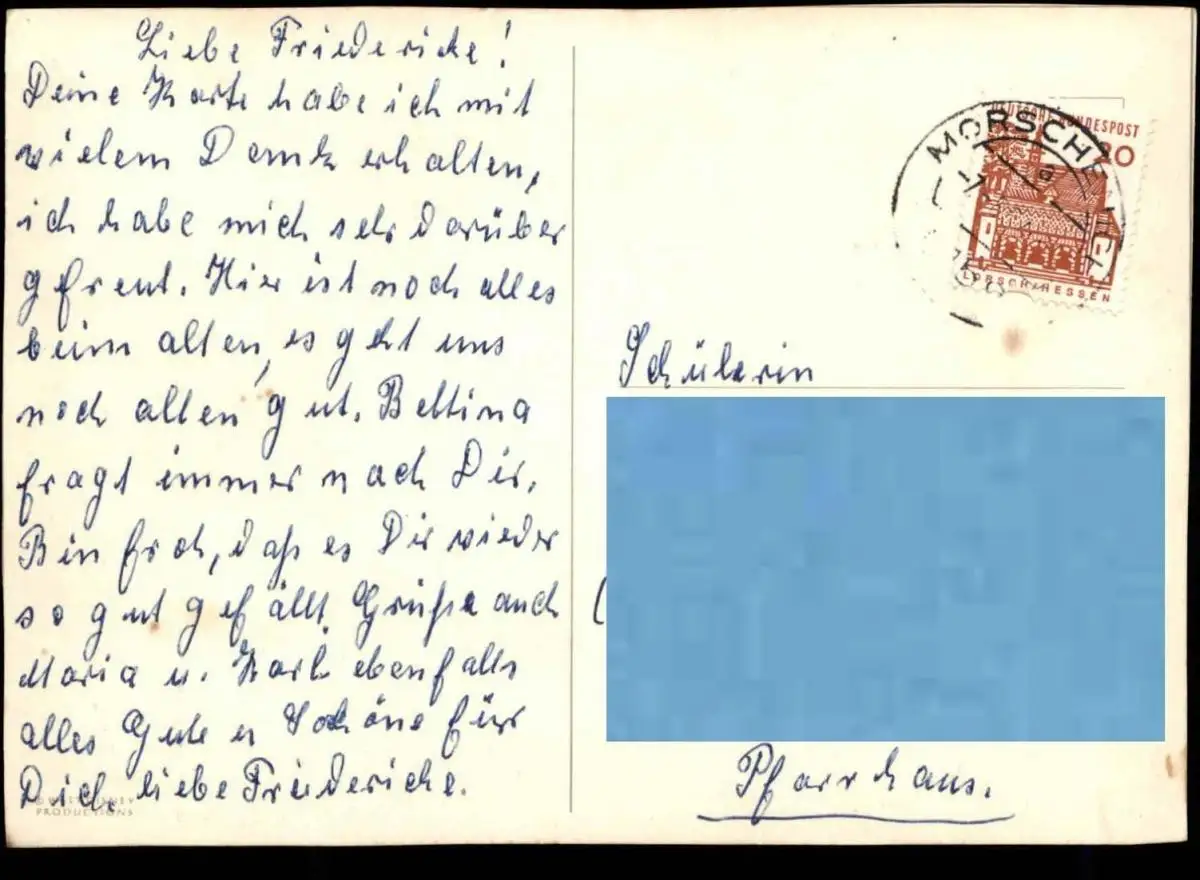 Liebe Friedericke!
Deine Karte habe ich mit
vielem Dank erhalten,
ich habe mich sehr darüber
gefreut. Hier ist noch alles
beim alten, es geht uns
noch allen gut. Bettina
fragt immer nach Dir.
Bin froh, daß es Dir wieder
so gut gefällt. Grüße auch
Maria u. Karl ebenfalls
alles Gute u Schöne für
Dich, liebe Friedericke.
© WALT DISNEY
PRODUCTIONS
DEUTSCHE BUNDESPOST
20
LORSCH/HESSEN
MORSCHENICH
Schülerin
Pfarrhaus.